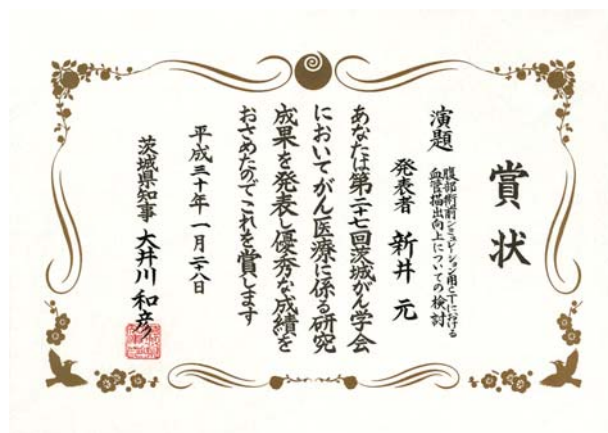 賞状
演題 腹部術前シミュレーション用CTにおける
血管描出向上についての検討
発表者 新井 元
あなたは第二十七回茨城がん学会
においてがん医療に係る研究
成果を発表し優秀な成績を
おさめたのでこれを賞します
平成三十年一月二十八日
茨城県知事 大井川 和彦